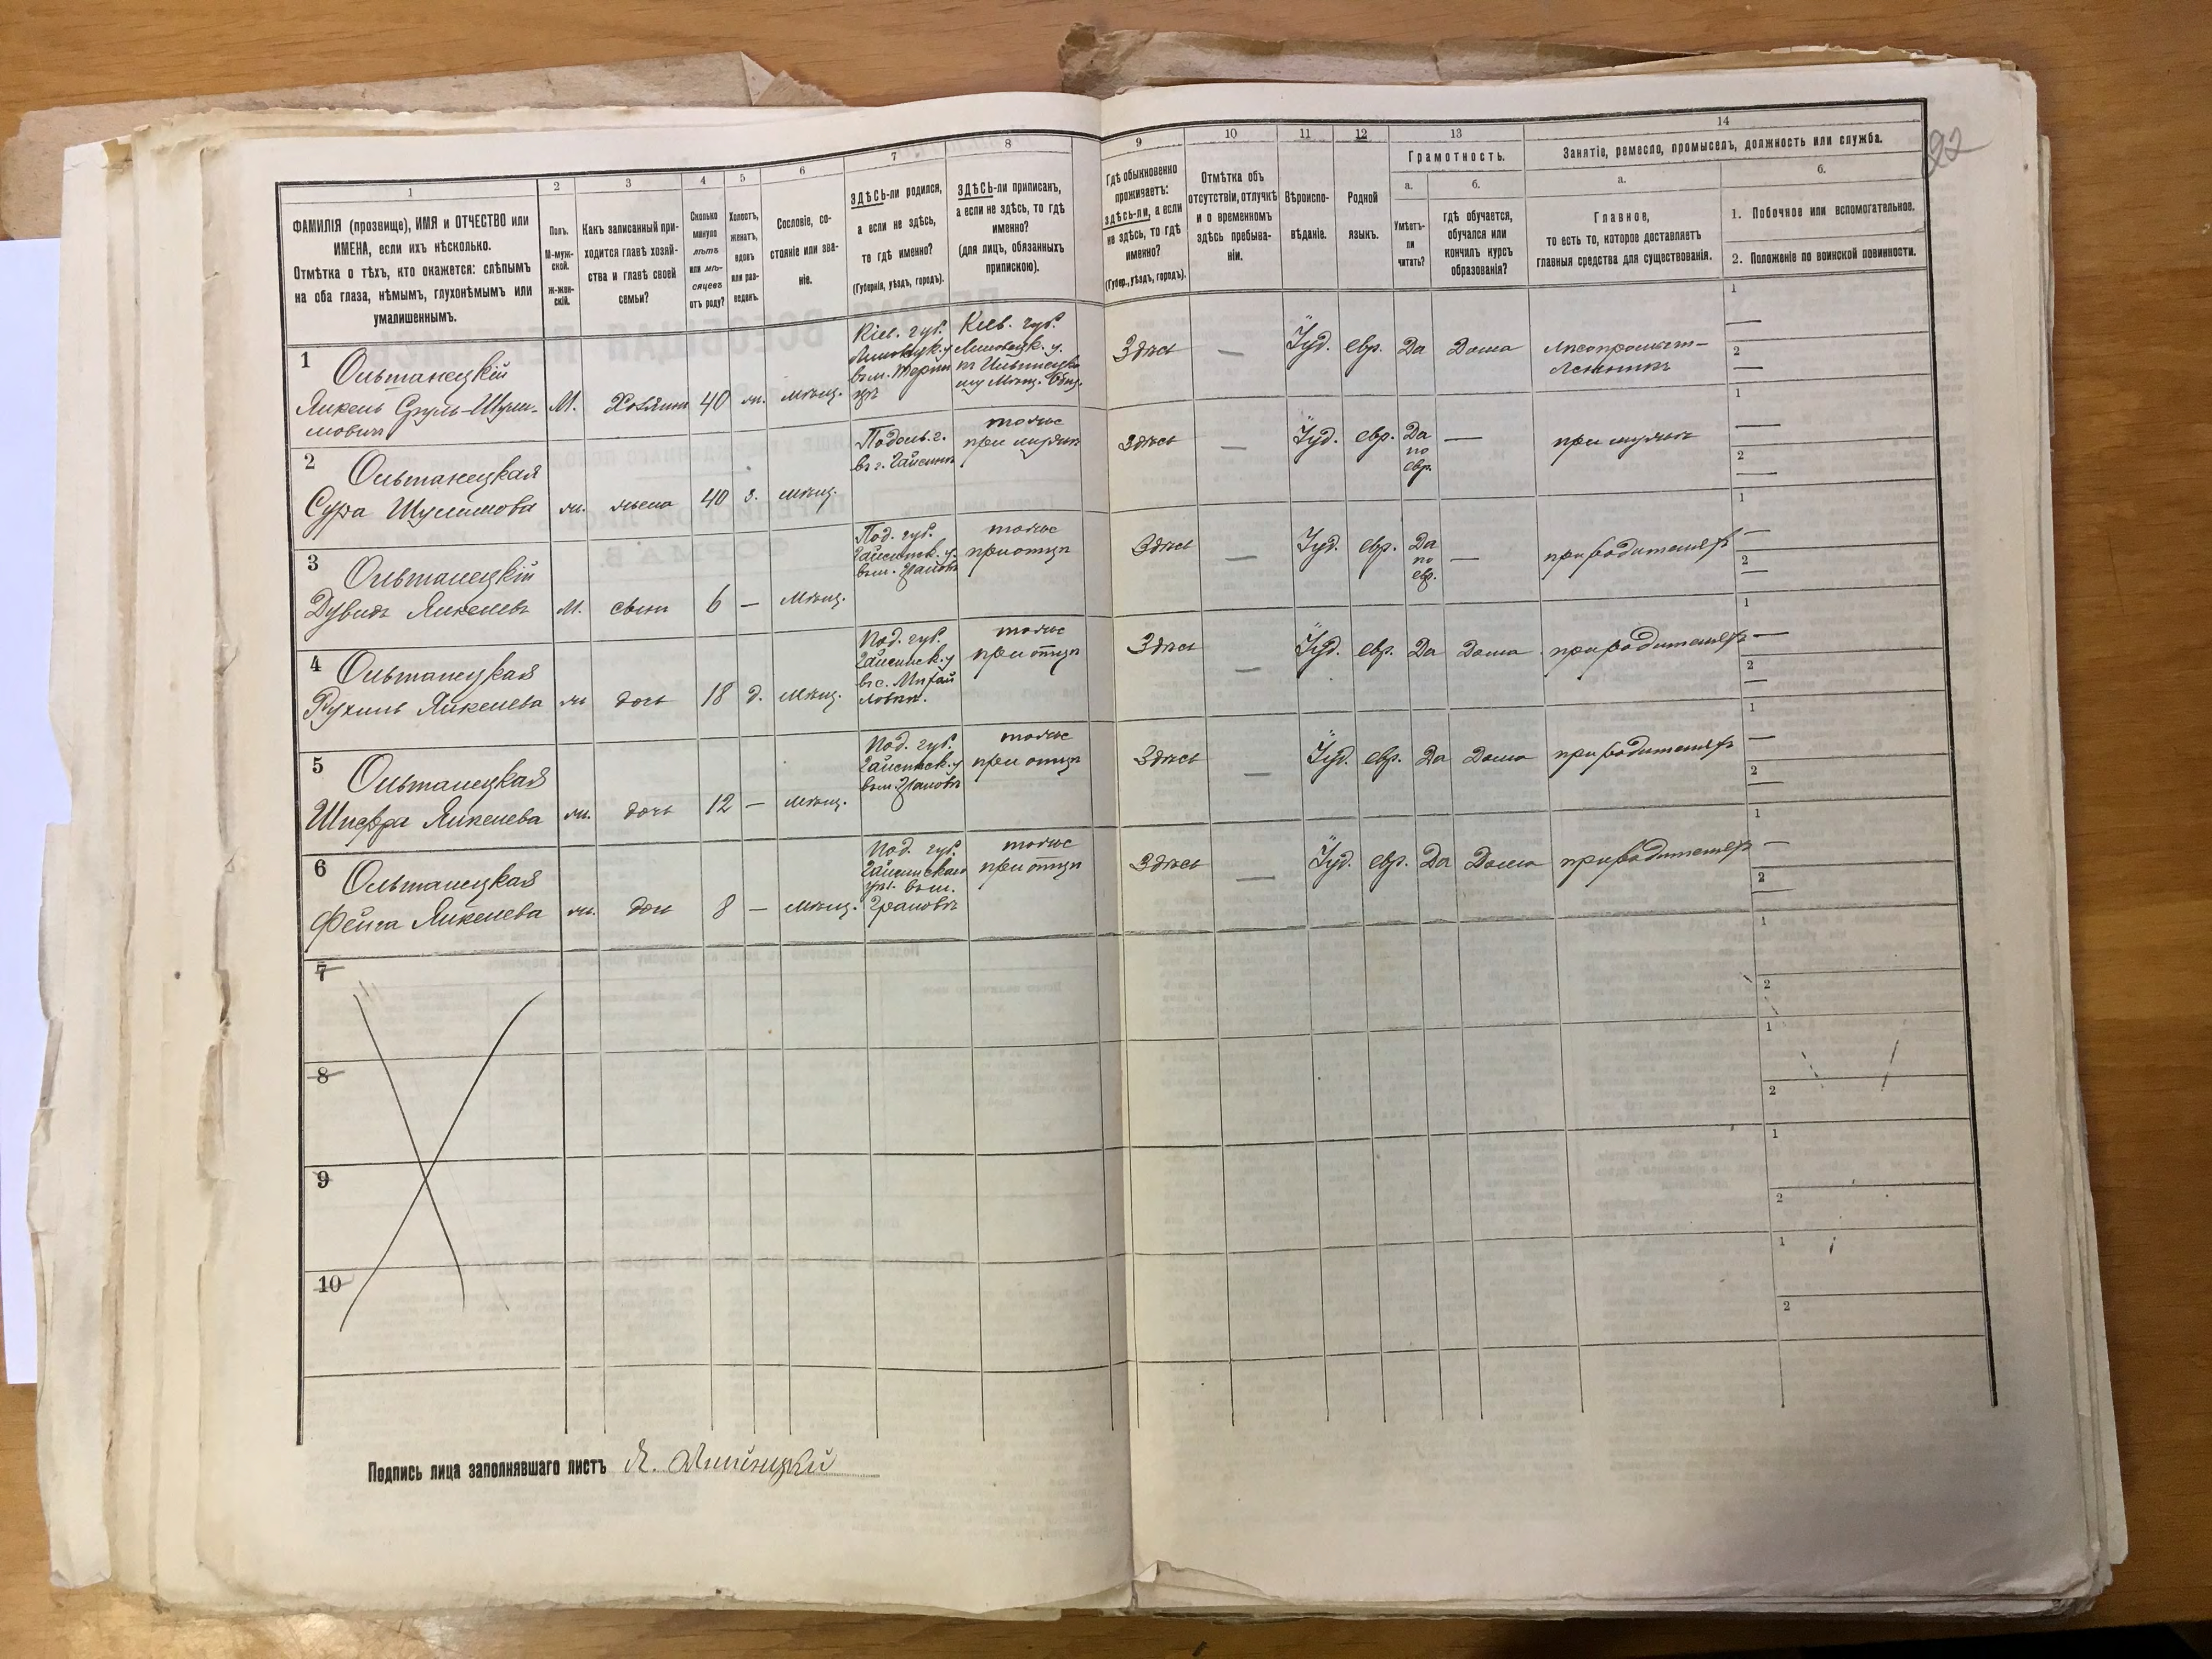 1
2
3
4
5
6
7
8
9
10
11
12
13
14
ФАМИЛІЯ (прозвище), ИМЯ и ОТЧЕСТВО или
ИМЕНА, если ихъ нѣсколько.
Отмѣтка о тѣхъ, кто окажется: слѣпымъ
на оба глаза, нѣмымъ, глухонѣмымъ или
умалишеннымъ.
Полъ.
М-муж-
ской.
Ж-жен-
скій.
Какъ записанный при-
ходится главѣ хозяй-
ства и главѣ своей
семьи?
Сколько
минуло
лѣтъ
или мѣ-
сяцевъ
отъ роду?
Холостъ,
женатъ,
вдовъ
или раз-
веденъ.
Сословіе, со-
стояніе или зва-
ніе.
ЗДѢСЬ-ли родился,
а если не здѣсь,
то гдѣ именно?
(Губернія, уѣздъ, городъ).
ЗДѢСЬ-ли приписанъ,
а если не здѣсь, то гдѣ
именно?
(для лицъ, обязанныхъ
припискою).
Гдѣ обыкновенно
проживаетъ:
здѣсь-ли, а если
не здѣсь, то гдѣ
именно?
(Губер., уѣздъ, городъ).
Отмѣтка объ
отсутствіи, отлучкѣ
и о временномъ
здѣсь пребыва-
ніи.
Вѣроиспо-
вѣданіе.
Родной
языкъ.
Грамотность.
а.
Умѣетъ-
ли
читать?
б.
гдѣ обучается,
обучался или
кончилъ курсъ
образованія?
Занятіе, ремесло, промыселъ, должность или служба.
а.
Главное,
то есть то, которое доставляетъ
главныя средства для существованія.
б.
1. Побочное или вспомогательное.
2. Положеніе по воинской повинности.
1
Ольшанецкій
Янкель Сруль-Шули-
мовичъ
М. Хозяинъ 40 ж. мѣщ.
Кіев. губ.
Липовецк. у.
Кіев. губ.
Липовецк. у.
Здѣсь — Іуд. евр. Да Дома
лѣсопромыш-
ленникъ
1 —
2 —
2
Ольшанецкая
Сура Шулимова
ж. жена 40 з. мѣщ.
Подоль. г.
въ г. Гайсинѣ
тоже
при мужѣ
Здѣсь — Іуд. евр. Да
по
евр.
—
при мужѣ
1 —
2 —
3
Ольшанецкій
Дувидъ Янкелевъ
М. сынъ 6 — мѣщ.
Под. губ.
Гайсинск. у.
въ м. Грановѣ
тоже
при отцѣ
Здѣсь — Іуд. евр. Да
по
евр.
—
при родителяхъ
1 —
2 —
4
Ольшанецкая
Рухиль Янкелева
ж. дочь 18 д. мѣщ.
Под. губ.
Гайсинск. у
въ с. Михай
ловкѣ.
тоже
при отцѣ
Здѣсь — Іуд. евр. Да Дома при родителяхъ
1 —
2 —
5
Ольшанецкая
Шифра Янкелева
ж. дочь 12 — мѣщ.
Под. губ.
Гайсинск. у
въ м. Грановѣ
тоже
при отцѣ
Здѣсь — Іуд. евр. Да Дома при родителяхъ
1 —
2 —
6
Ольшанецкая
Фейга Янкелева
ж. дочь 8 — мѣщ.
Под. губ.
Гайсинскаго
въ м.
Грановѣ
тоже
при отцѣ
Здѣсь — Іуд. евр. Да Дома при родителяхъ
1 —
2 —
7
1
2
8
1
2
9
1
2
10
1
2
Подпись лица заполнявшаго листъ